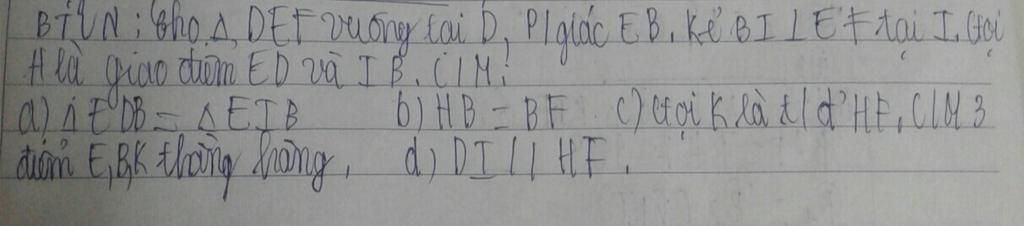 BTVN: Cho △ DEF vuông tại D, P/giác EB. Kẻ BI ⊥ EF tại I. Gọi
H là giao điểm ED và IB. C/M:
a) △EDB = △EIB b) HB = BF c) Gọi K là t/đ' HF, C/M 3
điểm E,B,K thẳng hàng, d) DI // HF.